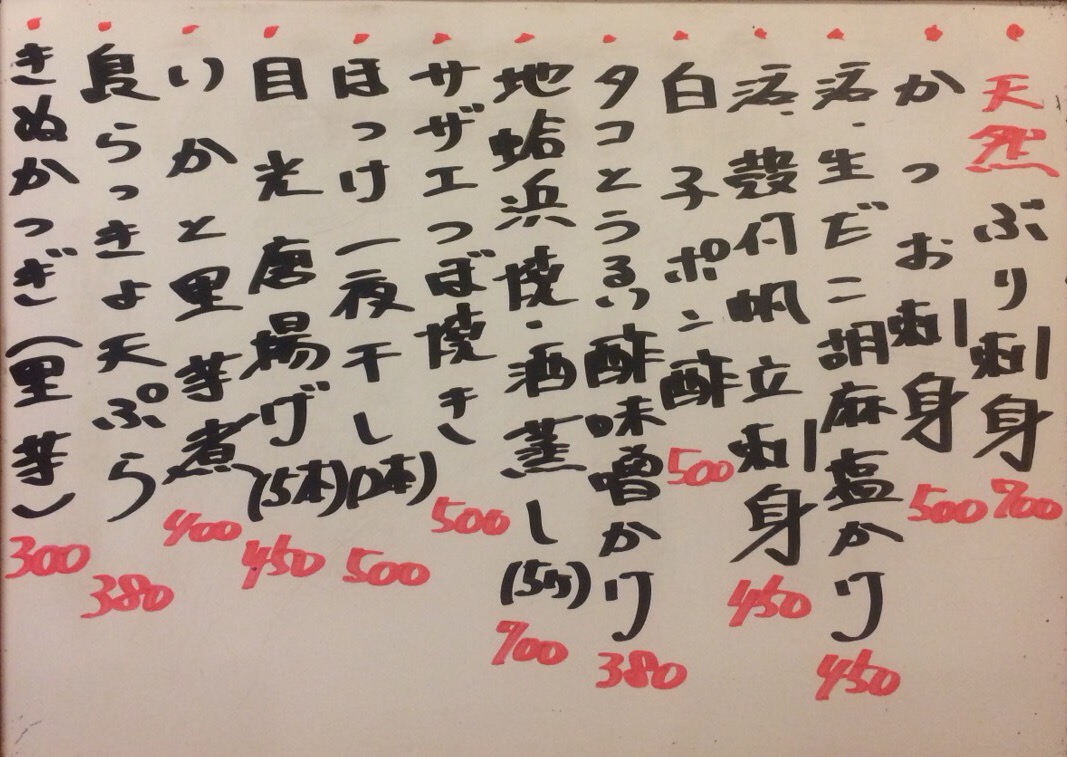 ・天然ぶり刺身 700
・かつお刺身 500
・活・生だこ胡麻塩かけ 450
・活・殻付帆立刺身 450
・白子ポン酢 500
・タコとうるい酢味噌かけ 380
・地蛤浜焼・酒蒸し(5ケ) 700
・サザエつぼ焼き 500
・ほっけ一夜干し(1本) 500
・目光唐揚げ(5本) 450
・いかと里芋煮 400
・島らっきょ天ぷら 380
・きぬかつぎ(里芋) 300